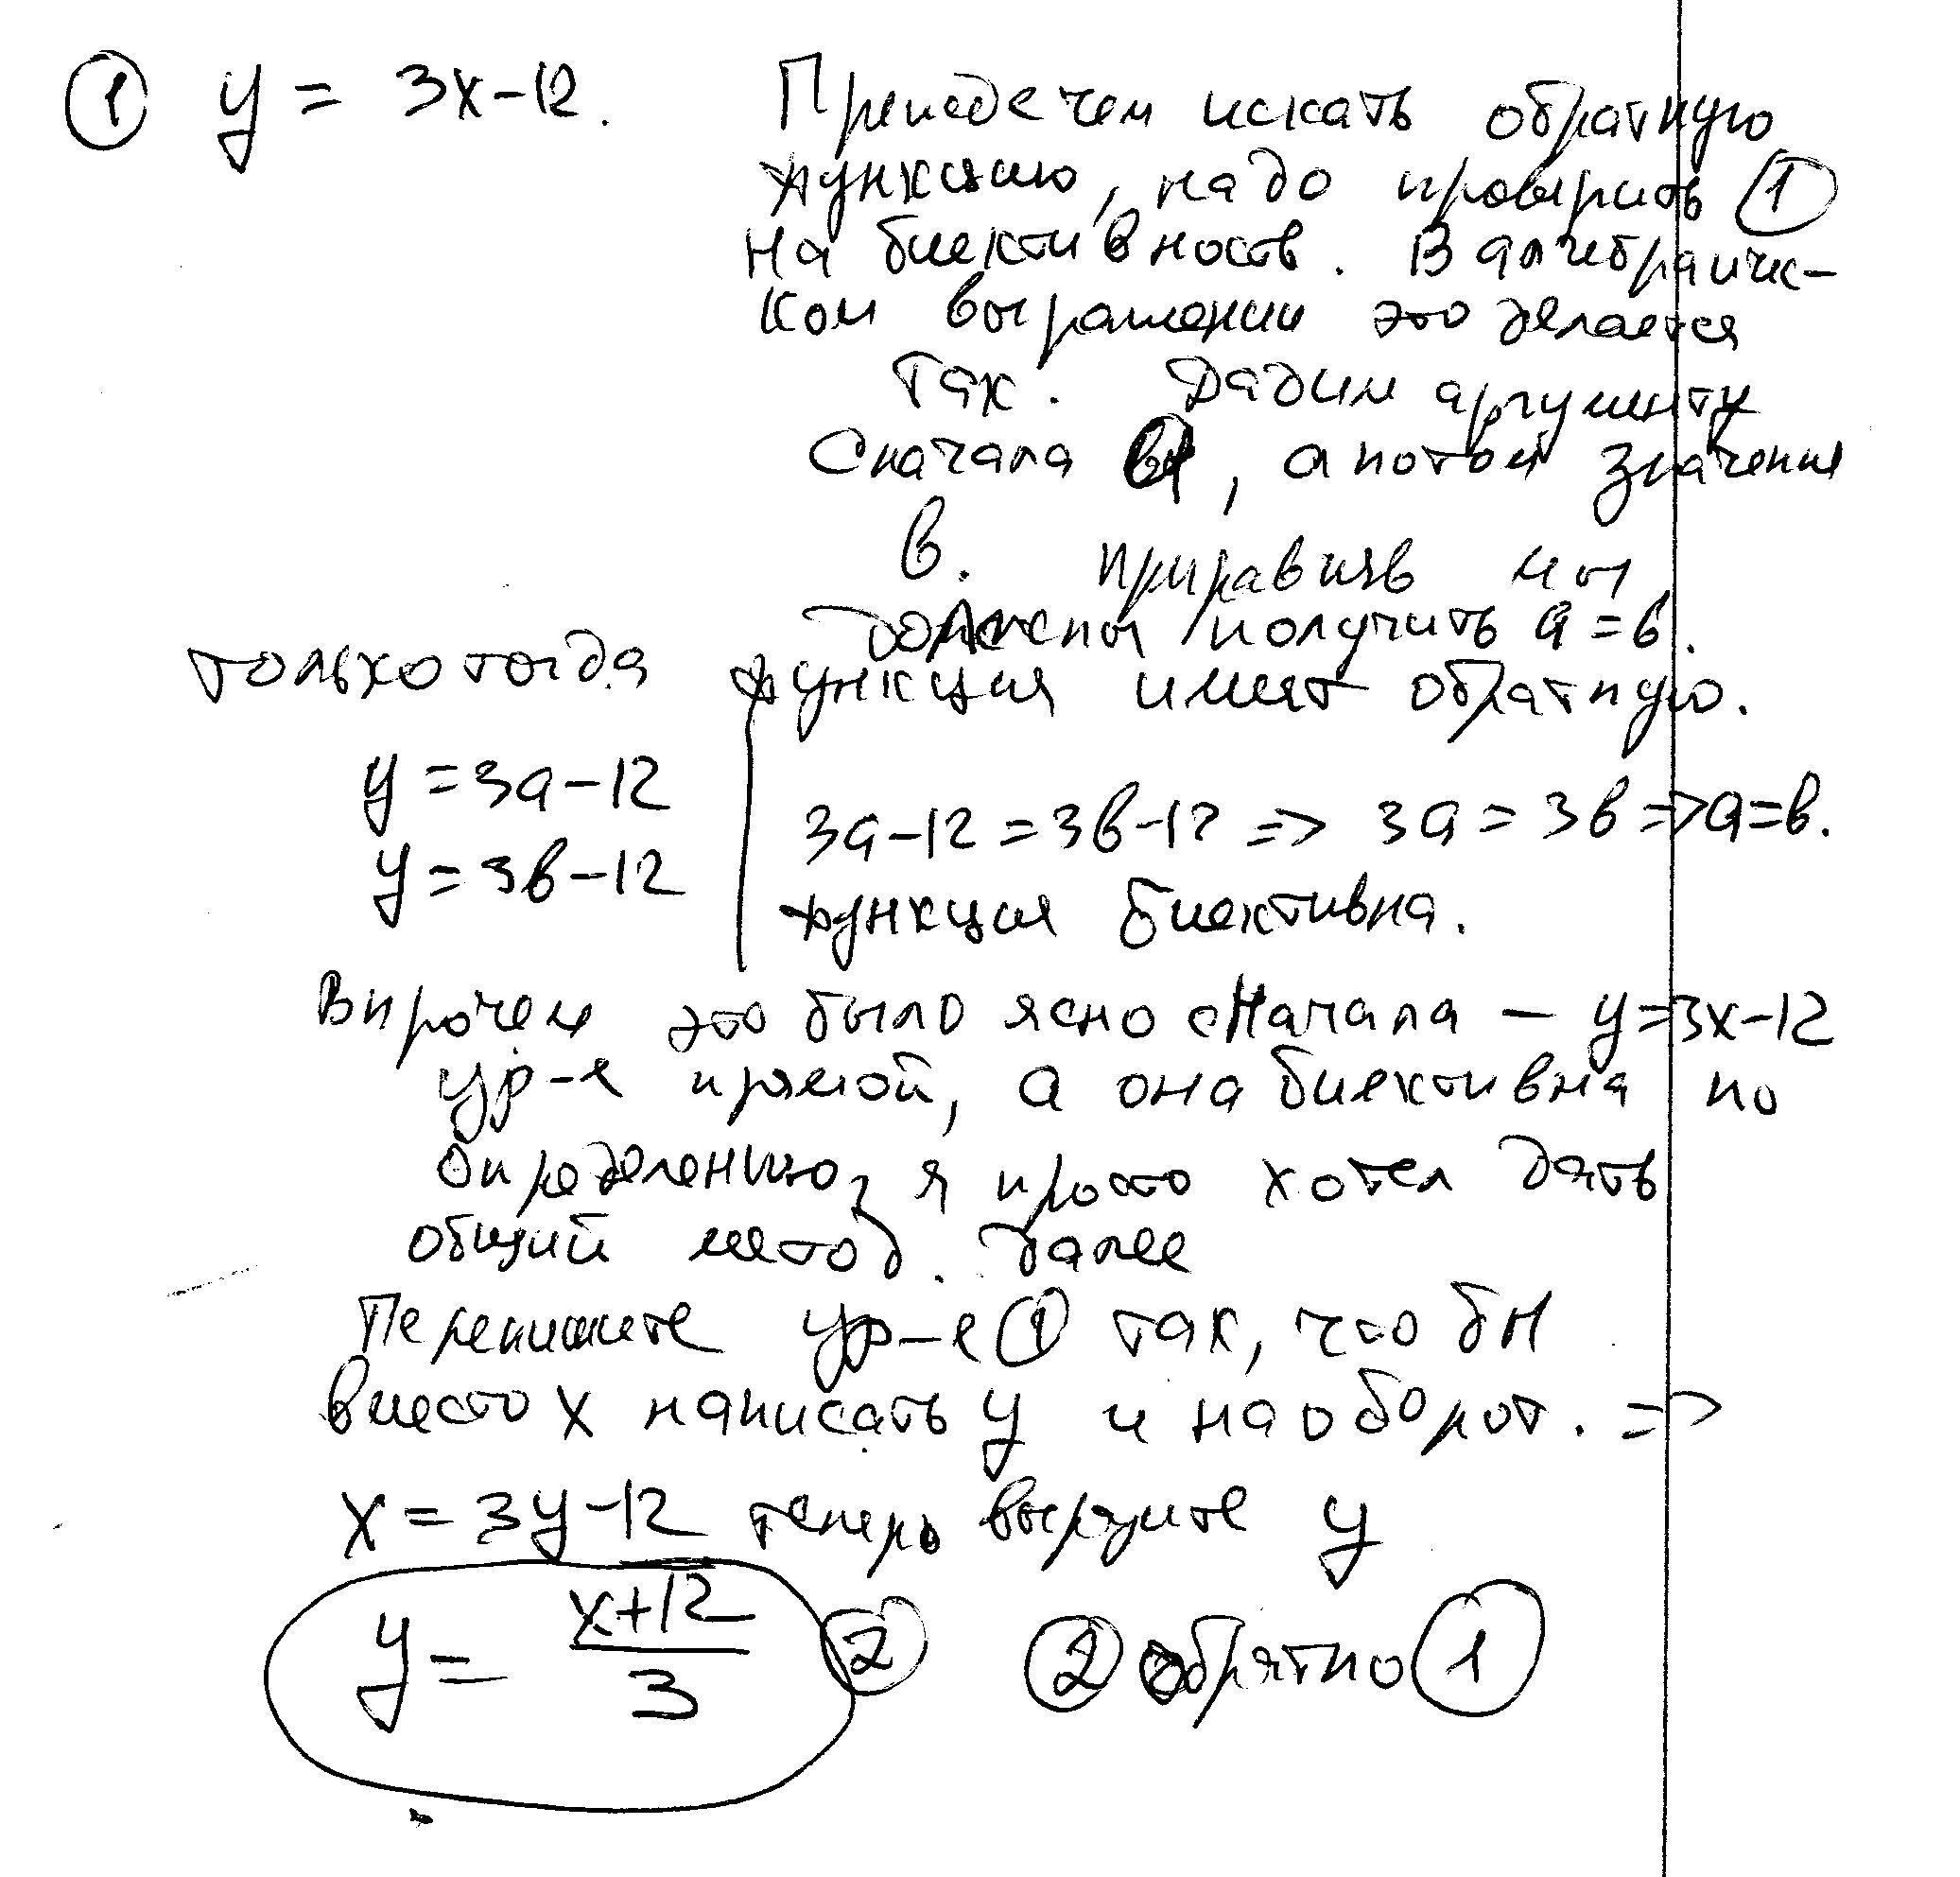 ① y = 3x-12. Прежде чем искать обратную
функцию, надо проверить ①
на биективность. В алгебраичес-
ком выражении это делается
так. Дадим аргументу
сначала a, а потом значения
в. приравняв мы
должны получить a = в.
только тогда функция имеет обратную.
y = 3a-12
3a-12 = 3в-12 => 3a = 3в => a = в.
y = 3в-12
функция биективна.
Впрочем это было ясно сначала - y = 3x-12
ур-е прямой, а она биективна по
определению, я просто хотел дать
общий метод. далее
Перепишите ур-е ① так, что бы
вместо x написать y и наоборот. =>
x = 3y-12 теперь выразите y
y = \frac{x+12}{3} ② ② обратно ①